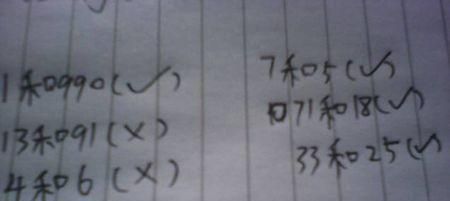 1和990(✓)
13和91(×)
4和6(×)
7和5(✓)
71和18(✓)
33和25(✓)